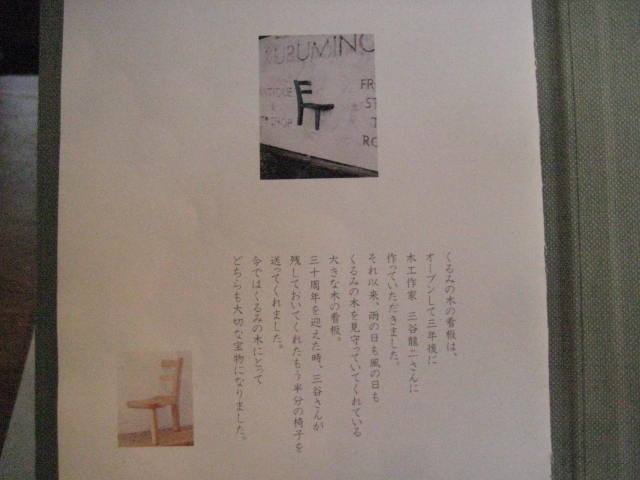 KURUMINO
FR
ST
T
RO
くるみの木の看板は、
オープンして三年後に
木工作家 三谷龍二さんに
作っていただきました。
それ以来、雨の日も風の日も
くるみの木を見守っていてくれている
大きな木の看板。
三十周年を迎えた時、三谷さんが
残しておいてくれたもう半分の椅子を
送ってくれました。
今ではくるみの木にとって
どちらも大切な宝物になりました。